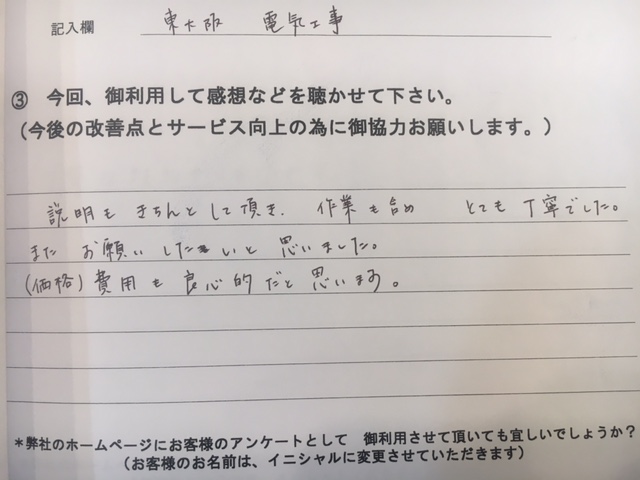 記入欄 東大阪 電気工事
③ 今回、御利用して感想などを聴かせて下さい。
(今後の改善点とサービス向上の為に御協力お願いします。)
説明もきちんとして頂き、作業も含め とても丁寧でした。
またお願いしたいと思いました。
(価格)費用も良心的だと思います。
*弊社のホームページにお客様のアンケートとして 御利用させて頂いても宜しいでしょうか?
(お客様のお名前は、イニシャルに変更させていただきます)